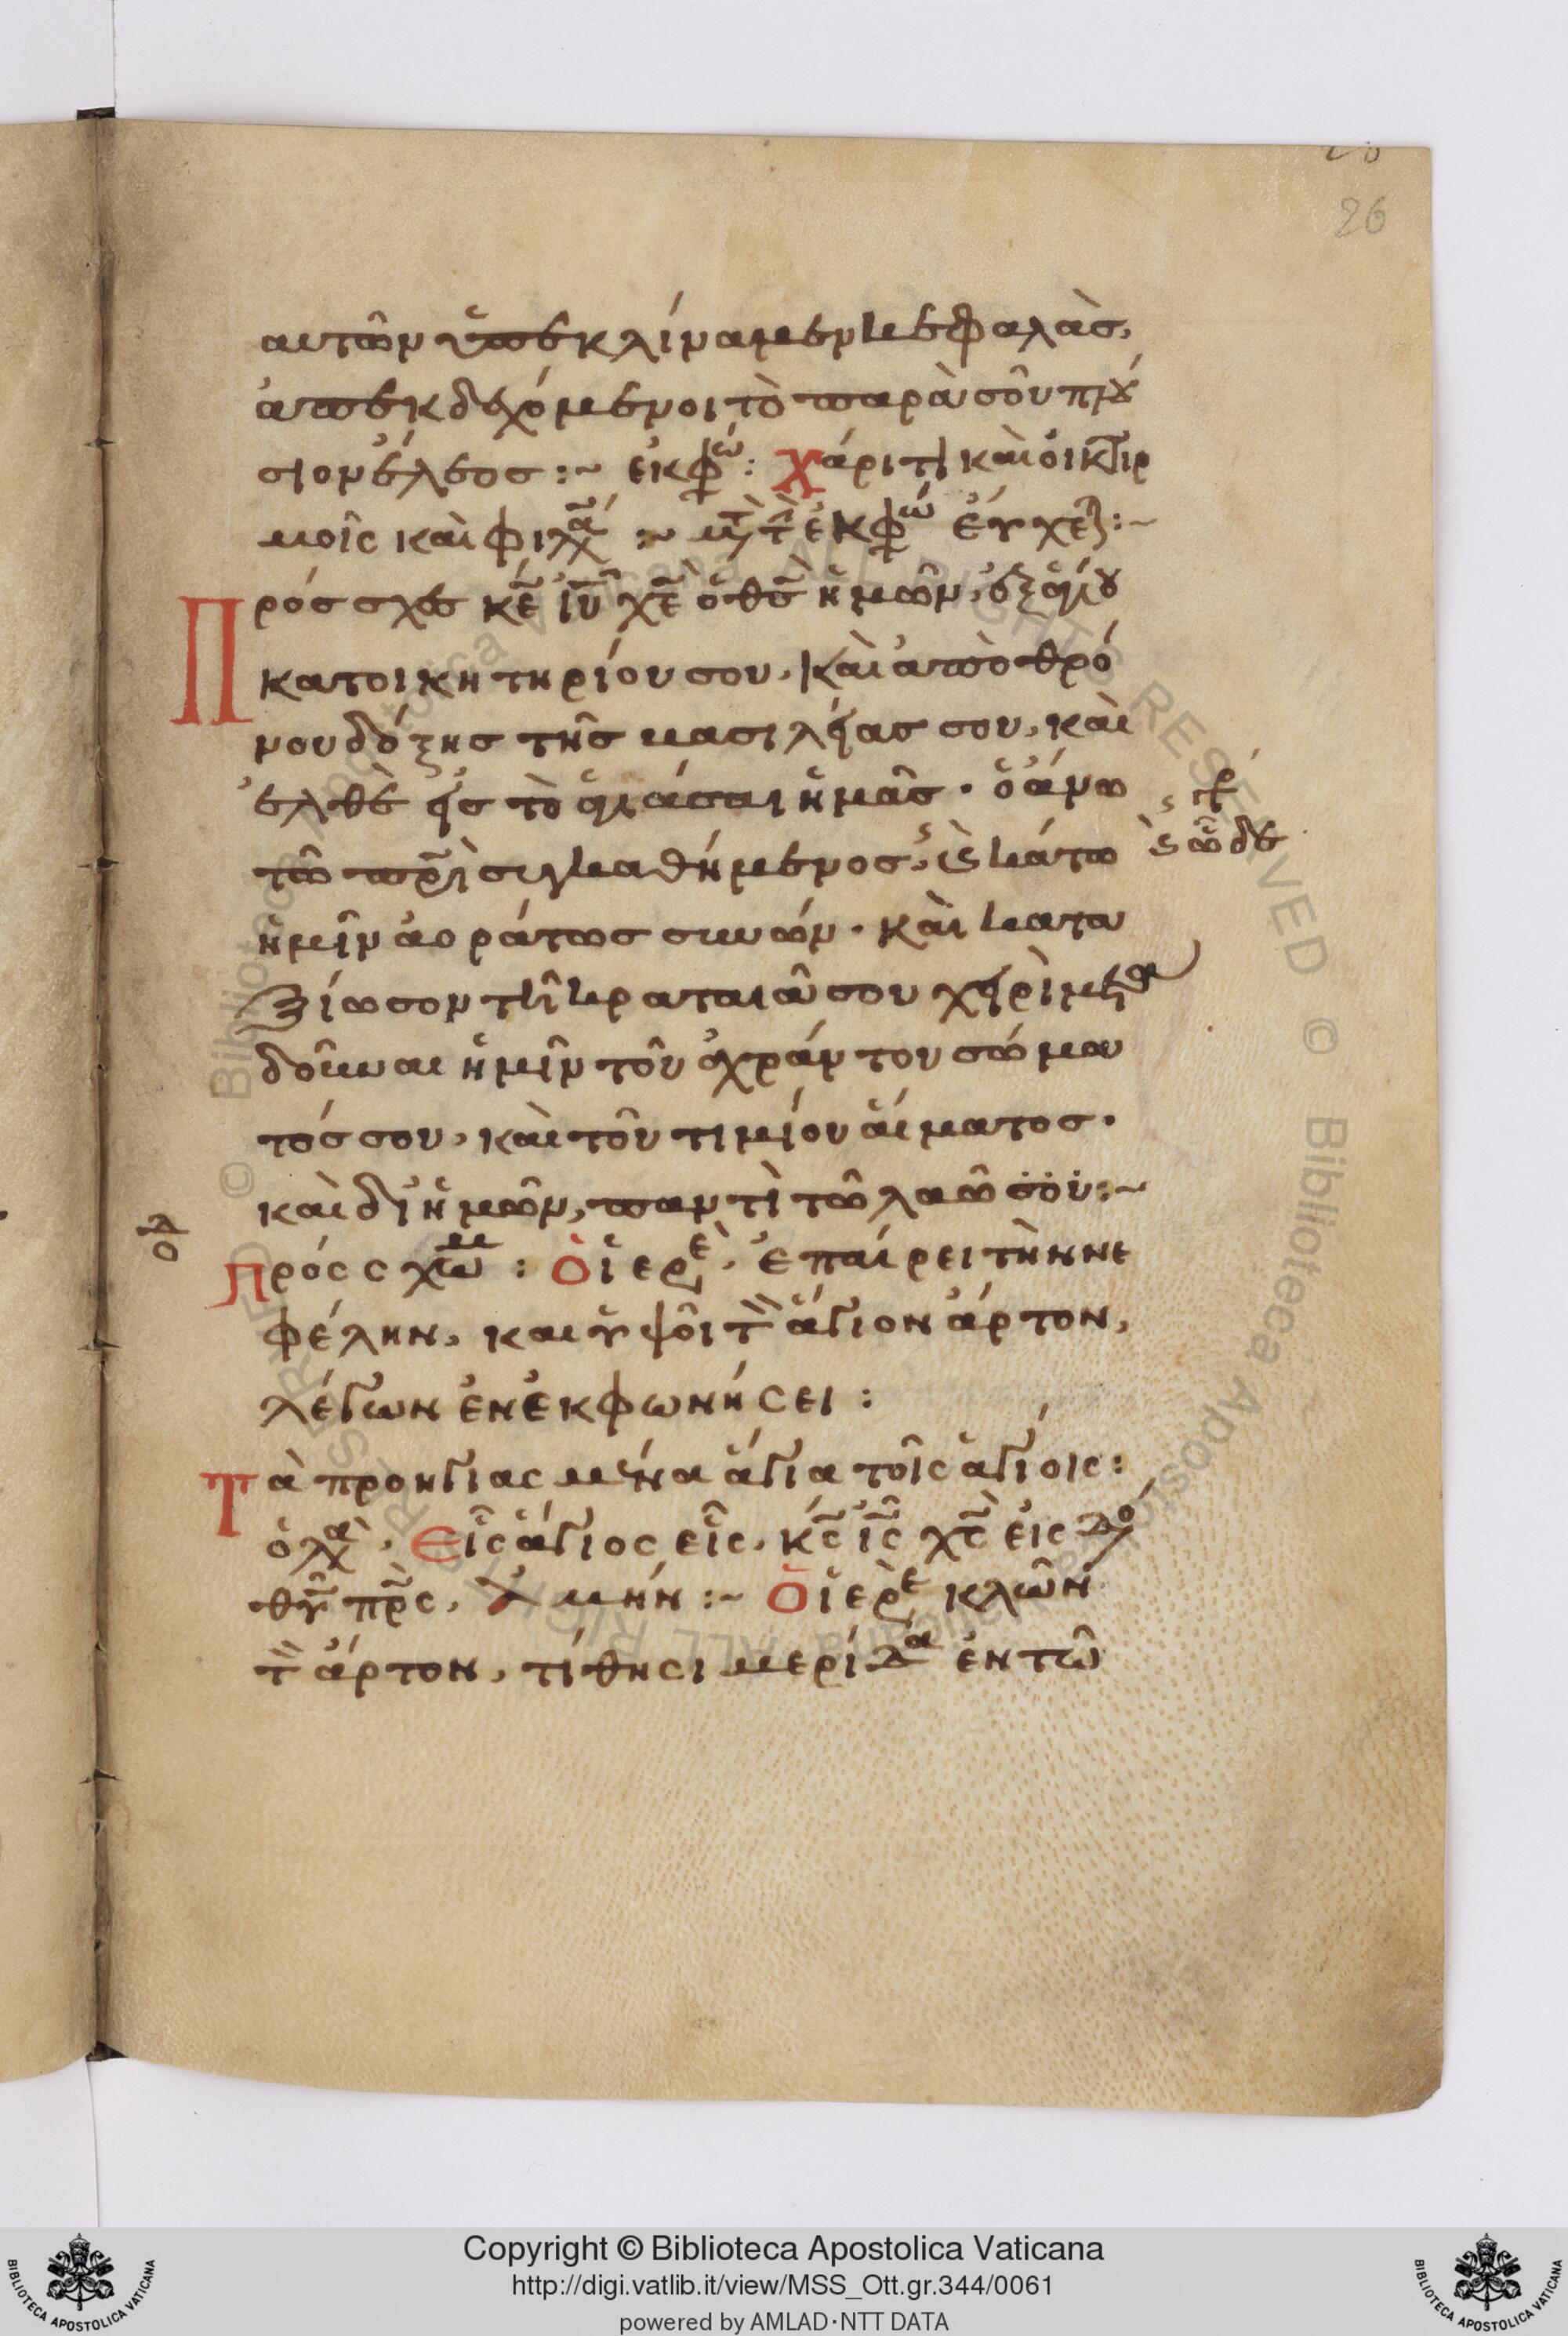 26
αυτῶν ὑπεκλίναμεν κεφαλὰς,
ἀπεκδεχόμενοι τὸ παρὰ σοῦ πλού
σιον ἔλεος :~ ἐκφώ : χάριτι καὶ οἰκτιρ
μοῖς καὶ φιλα :~ ἐκφώ εὐχ :~
Πρόσσχες κε̅ ιυ̅ χε̅ ὁ θς̅ ἡμῶν, ἐξ ἁγίου
κατοικητηρίου σου, καὶ ἀπὸ θρό
νου δόξης τῆς βασιλείας σου, καὶ
ἐλθὲ εἰς τὸ ἁγιάσαι ἡμᾶς · ὁ ἄνω
τῶ πρι̅ συγκαθήμενος, ϛ κάτω
ϛ ὧδε
ἡμῖν ἀοράτως συνών · καὶ κατα
ξίωσον τῆ κραταιᾶ σου χειρὶ μετα
δοῦναι ἡμῖν τοῦ ἀχράντου σώμα
τός σου, καὶ τοῦ τιμίου αἵματος ·
καὶ δι ἡμῶν, παντὶ τῶ λαῶ σου :~
Πρόσσχωμ : Ὁ ἱερε, ἐπαίρει τὴν νε
φέλην, και ὑψοῖ τ ἅγιον ἄρτον,
λέγων ἐν ἐκφωνήσει :
Τὰ προηγιασμένα ἅγια τοῖς ἁγίοις :
ὁ λα, Εἷς ἅγιος εἷς, κς̅ ις̅ χς̅ εἰς δό
θυ̅ πρς̅, Ἀμήν :~ Ὁ ἱερε κλῶν
τ ἄρτον, τίθησι μερίδα ἐν τῶ
Copyright © Biblioteca Apostolica Vaticana
http://digi.vatlib.it/view/MSS_Ott.gr.344/0061
powered by AMLAD·NTT DATA
BIBLIOTECA APOSTOLICA VATICANA
BIBLIOTECA APOSTOLICA VATICANA